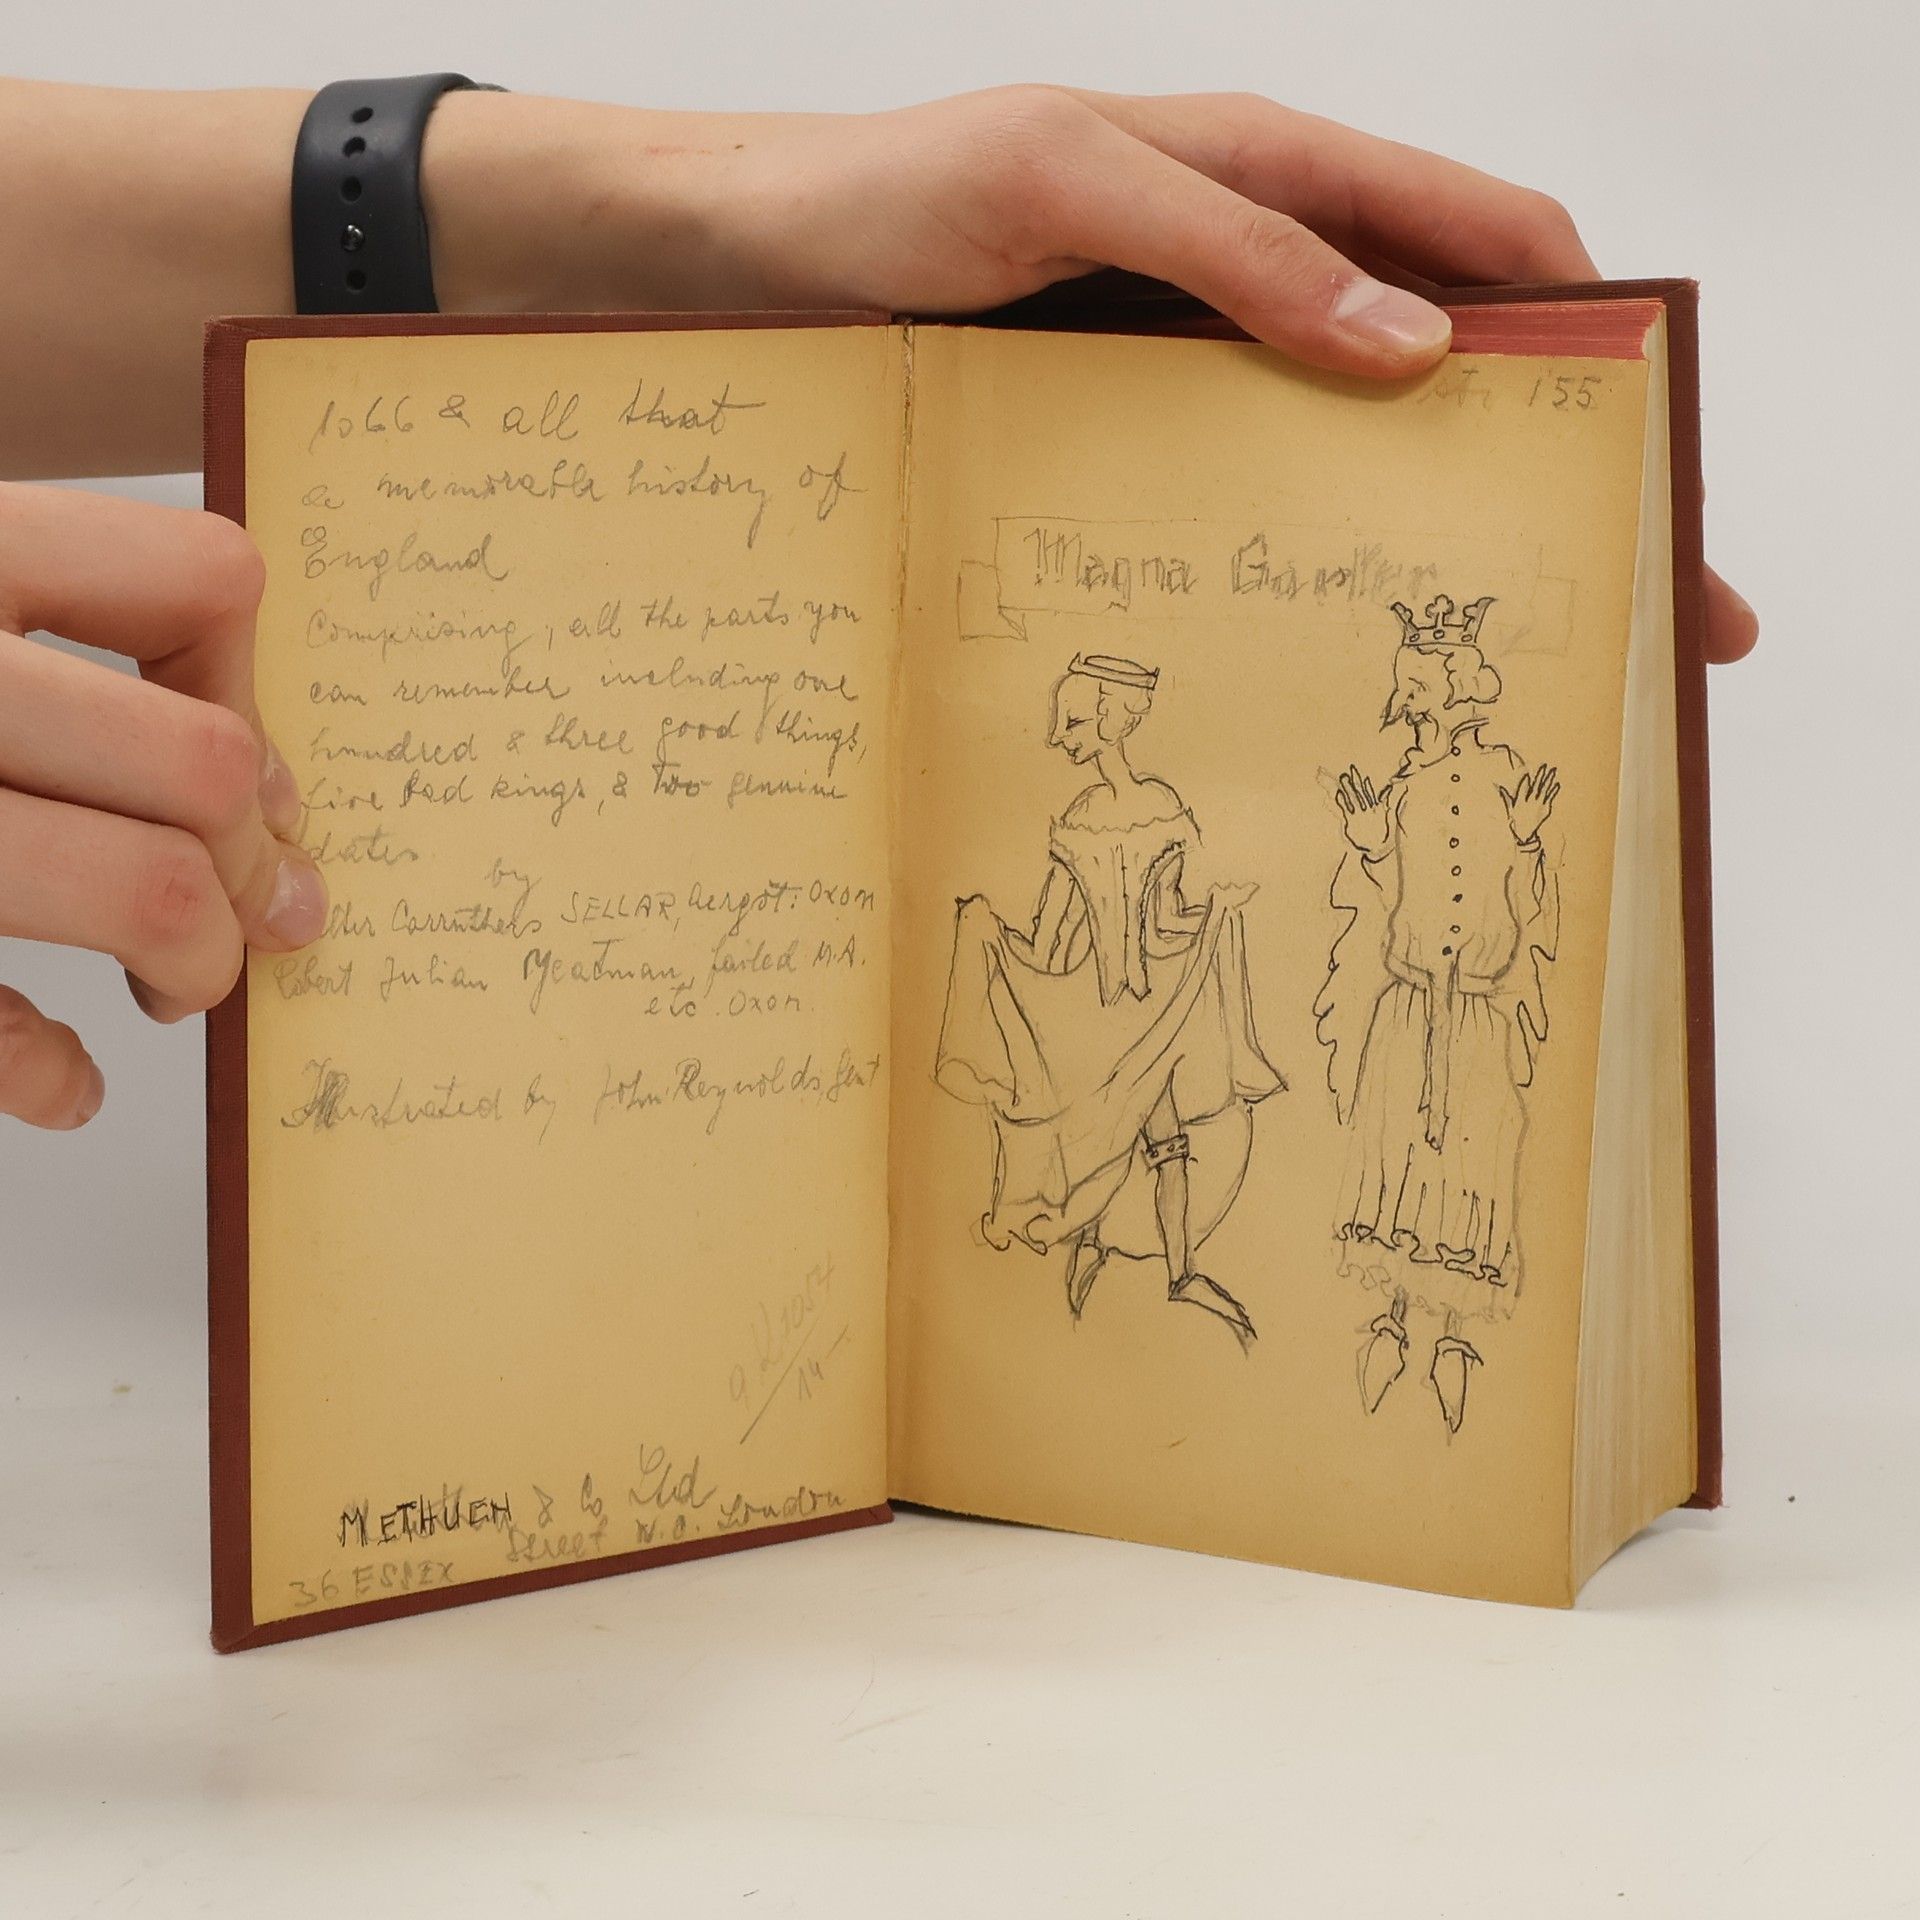 1066 & all that
a memorable history of
England
Comprising, all the parts you
can remember including one
hundred & three good things,
five Bad kings, & Two genuine
dates
by
lter Carruthers SELLAR, Aegrot: Oxon
obert Julian Yeatman, failed M.A.
etc. Oxon.
Illustrated by John Reynolds, Gent
METHUEN & Co Ltd
36 ESSEX Street W.C. London
155
Magna